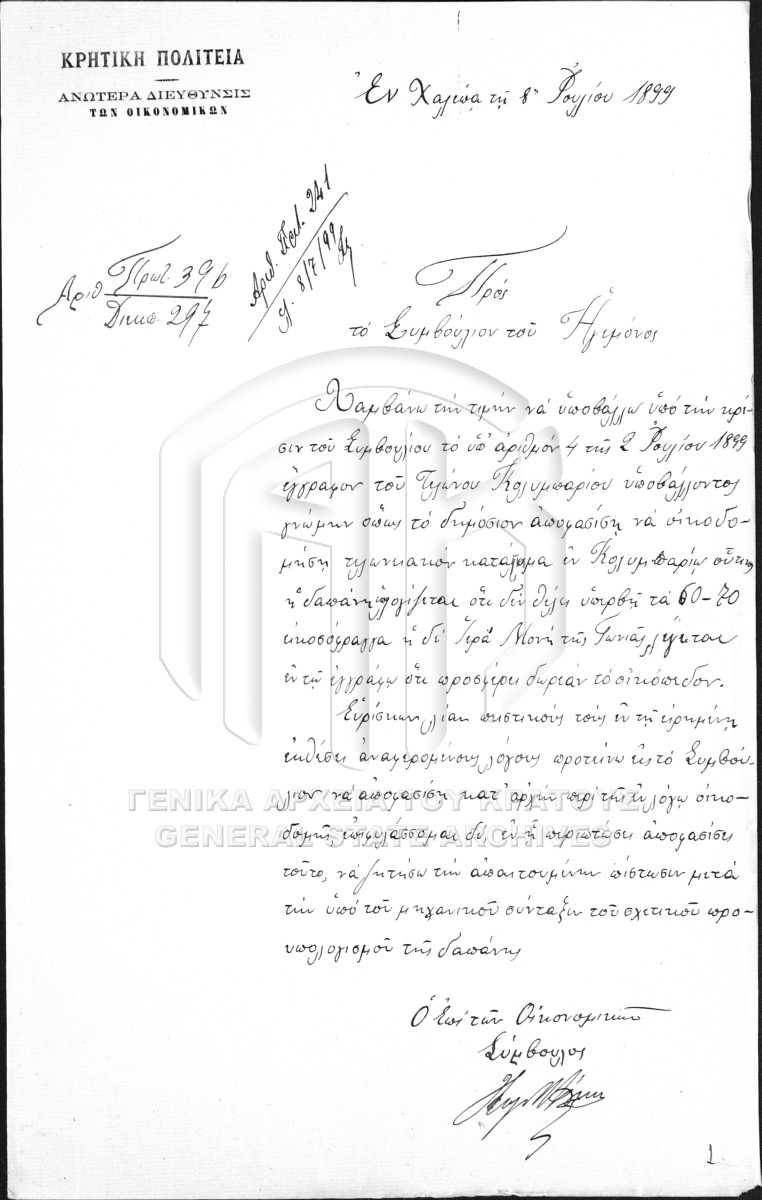 ΚΡΗΤΙΚΗ ΠΟΛΙΤΕΙΑ
ΑΝΩΤΕΡΑ ΔΙΕΥΘΥΝΣΙΣ
ΤΩΝ ΟΙΚΟΝΟΜΙΚΩΝ
Ἐν Χαλέπᾳ τῇ 8ῃ Ἰουλίου 1899
Ἀριθ. Πρωτ. 241
8/7/99
Ἀριθ Πρωτ. 396
Διεκπ. 297
Πρὸς
τὸ Συμβούλιον τοῦ Ἡγεμόνος
Λαμβάνω τὴν τιμὴν νὰ ὑποβάλλω ὑπὸ τὴν κρί-
σιν τοῦ Συμβουλίου τὸ ὑπ' ἀριθμὸν 4 τῆς 2 Ἰουλίου 1899
ἔγγραφον τοῦ Τελώνου Κολυμπαρίου ὑποβάλλοντος
γνώμην ὅπως τὸ δημόσιον ἀποφασίσῃ νὰ οἰκοδο-
μήσῃ τελωνειακὸν κατάστημα ἐν Κολυμπαρίῳ οὗτινος
ἡ δαπάνη ὑπολογίζεται ὅτι δὲν θέλει ὑπερβῆ τὰ 60-70
εἰκοσόφραγγα ἡ δὲ Ἱερὰ Μονὴ τῆς Γωνιᾶς λέγεται
ἐν τῷ ἐγγράφῳ ὅτι προσφέρει δωρεὰν τὸ οἰκόπεδον.
Εὑρίσκων λίαν πειστικοὺς τοὺς ἐν τῇ εἰρημένῃ
ἐκθέσει ἀναφερομένους λόγους προτείνω εἰς τὸ Συμβού-
λιον νὰ ἀποφασίσῃ κατ' ἀρχὴν περὶ τῆς ἐν λόγῳ οἰκο-
δομῆς, ἐπιφυλάσσομαι δέ, ἐν ᾗ περιπτώσει ἀποφασίσει
τοῦτο, νὰ ζητήσω τὴν ἀπαιτουμένην πίστωσιν μετὰ
τὴν ὑπὸ τοῦ μηχανικοῦ σύνταξιν τοῦ σχετικοῦ προ-
υπολογισμοῦ τῆς δαπάνης
Ὁ ἐπὶ τῶν Οἰκονομικῶν
Σύμβουλος
1
ΓΕΝΙΚΑ ΑΡΧΕΙΑ ΤΟΥ ΚΡΑΤΟΥΣ
GENERAL STATE ARCHIVES